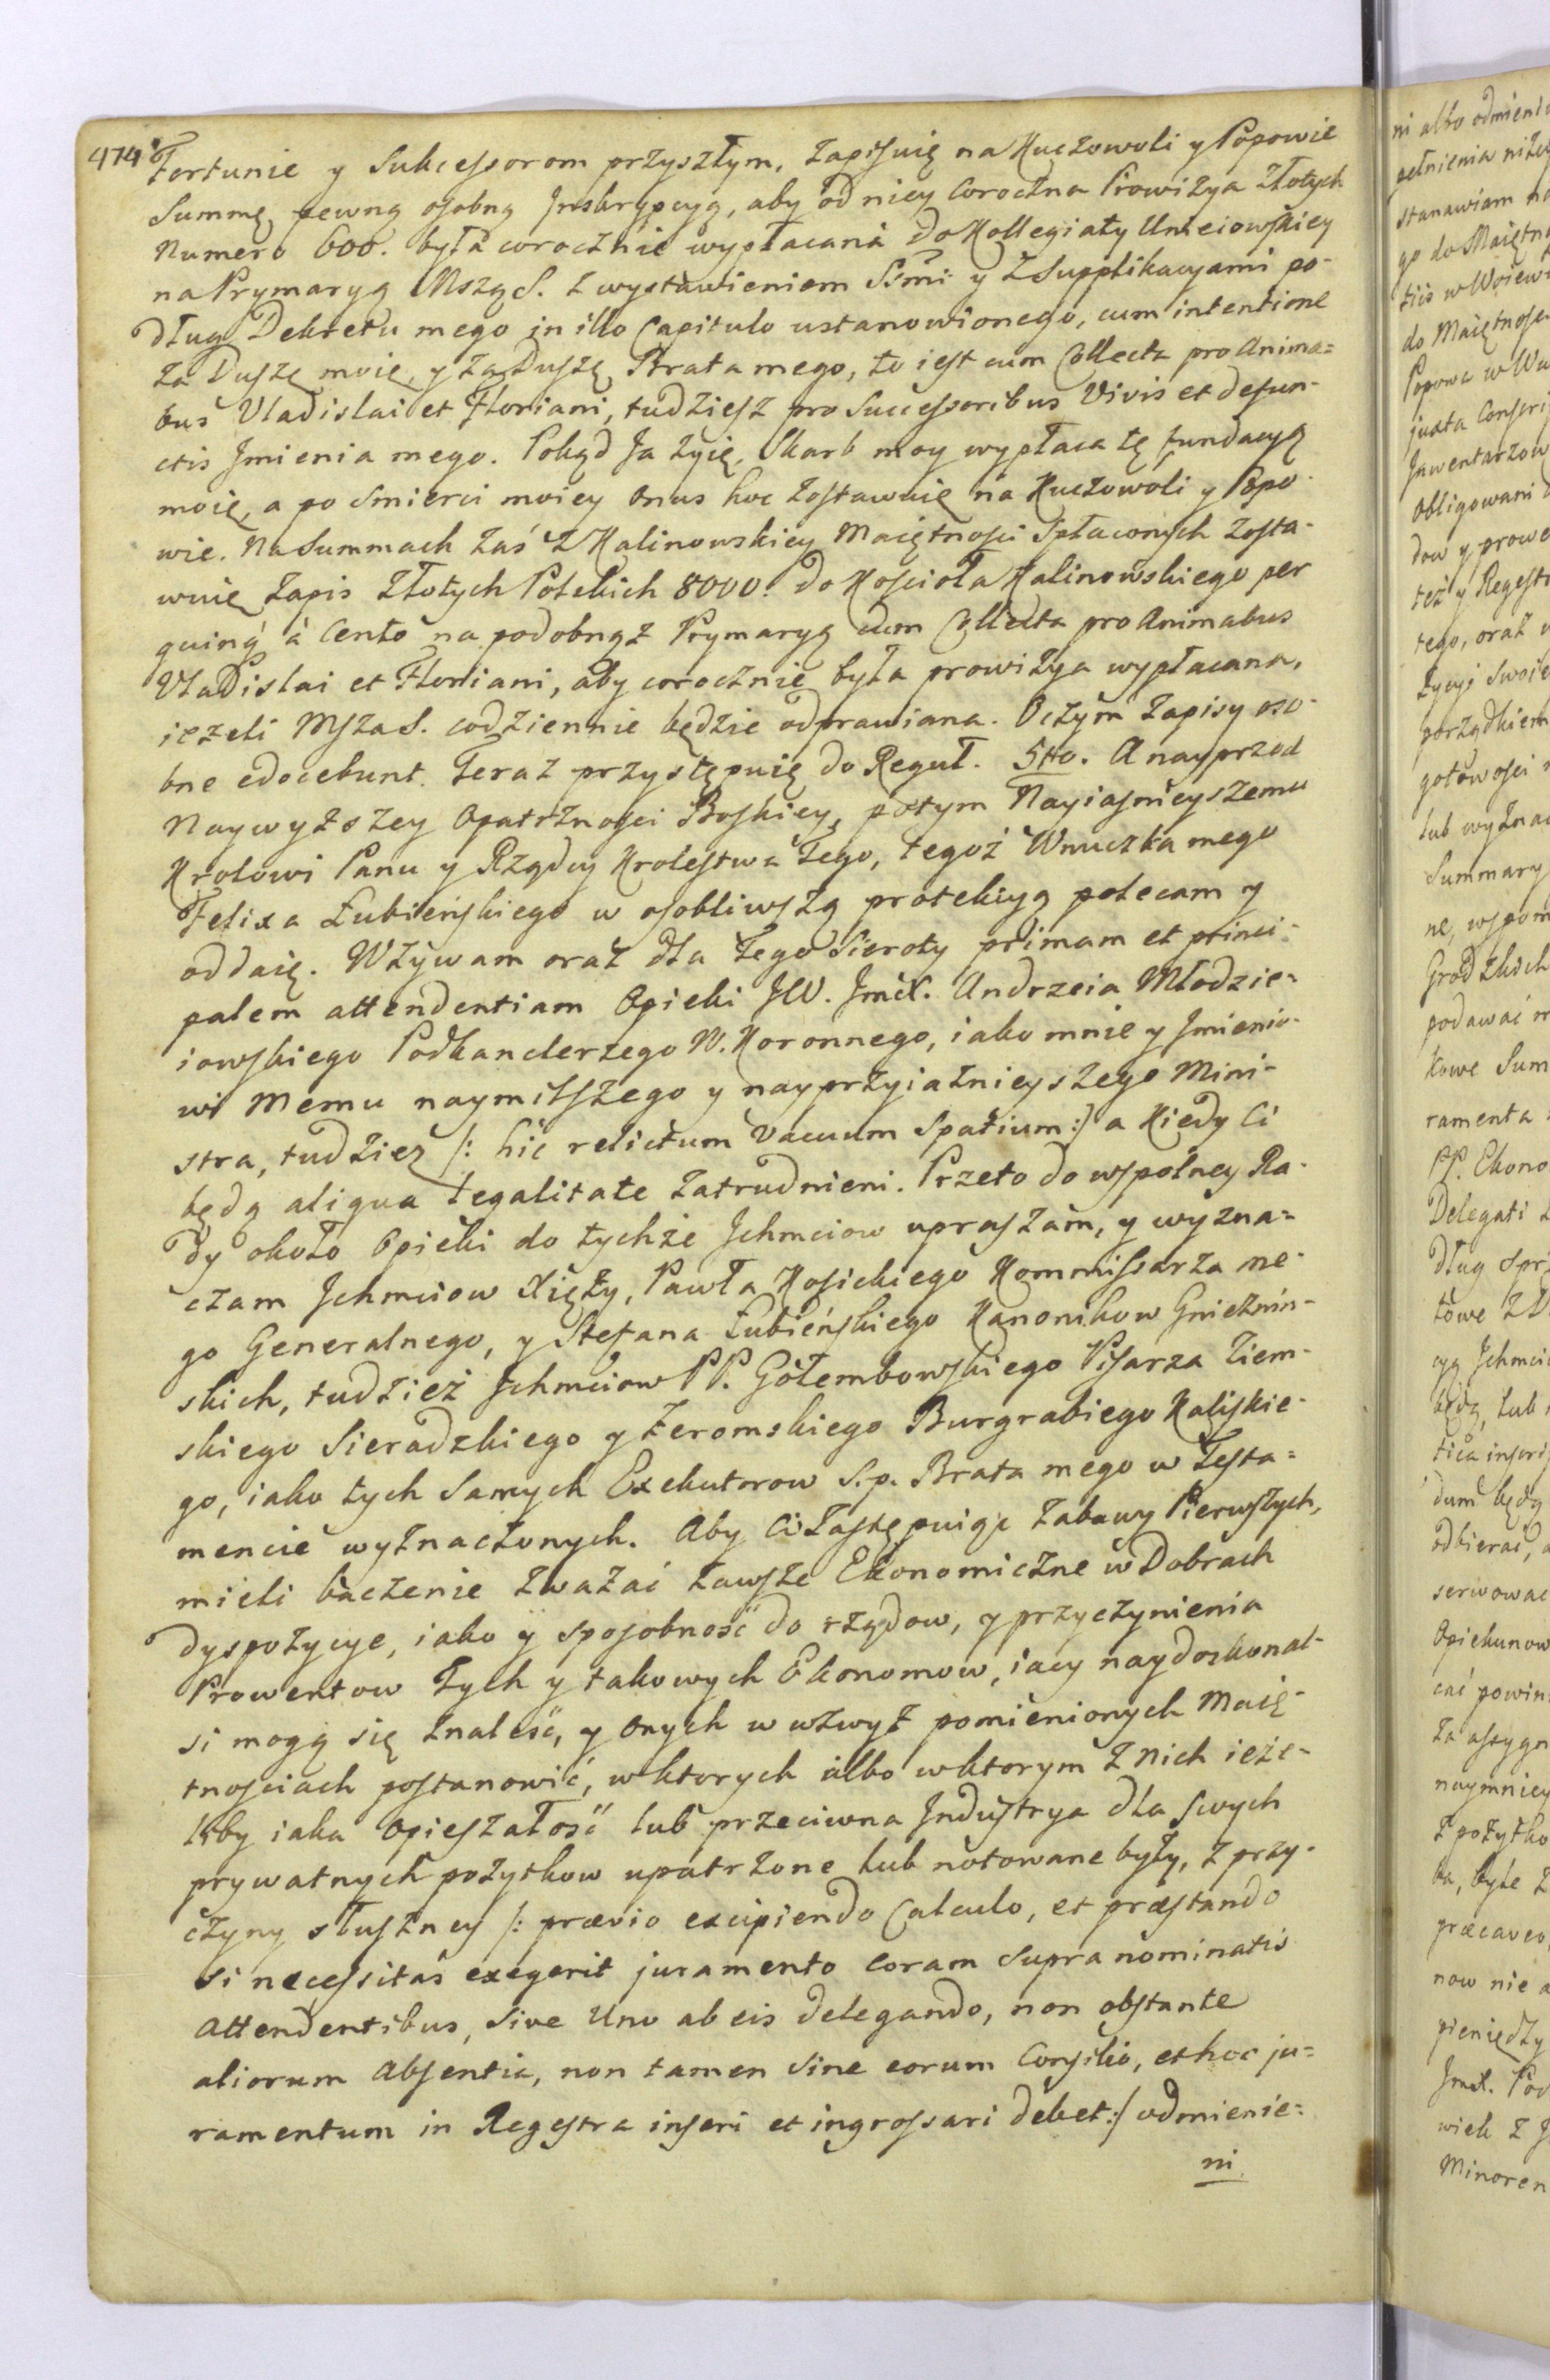 474
Fortunie y Sukcessorom przyszłym, Zapisuię na Kuczowoli y Popowie
Summę pewną osobną Inskrypcyą, aby od niey coroczna Prowizya Złotych
Numero 600. była corocznie wypłacana do Kollegiaty Unieiowskiey
na Prymaryą Mszą S. z wystawieniem SSmi y z Supplikacyami po-
dług Dekretu mego in illo Capitulo ustanowionego, cum intentione
za Duszę moię, y za Duszę Brata mego, to iest cum Collecta pro Anima=
bus Vladislai et Floriani, tudziesz pro Successoribus Vivis et defun-
ctis Imienia mego. Pokąd Ja żyię, Skarb moy wypłaca tę fundacyą
moię, a po smierci moiey onus hoc zostawuię na Kuczowoli y Popo-
wie. Na Summach zaś z Kalinowskiey Maiętności Spłaconych zosta-
wuię Zapis Złotych Polskich 8000. do Kościoła Kalinowskiego per
quinq́ à Cento na podobnąż Prymaryą cum Collecta pro Animabus
Vladislai et Floriani, aby corocznie była prowizya wypłacana,
ieżeli Msza S. codziennie będzie odprawiana. O czym Zapisy oso-
bne edocebunt. Teraz przystępuię do Reguł. 5to. A nayprzod
Naywyższey Opatrznosci Boskiey, potym Nayiasnieyszemu
Krolowi Panu y Rządcy Krolestwa Tego, tegoż Wnuczka mego
Felixa Łubieńskiego w osobliwszą protekcyą polecam y
oddaię. Wzywam oraz dla tego Sieroty primam et princi-
palem attendentiam Opieki JW. JmćX. Andrzeia Młodzie-
iowskiego Podkanclerzego W. Koronnego, iako mnie y Imienio-
wi memu naymilszego y nayprzyiaźnieyszego Mini-
stra, tudziez /: hic relictum vacuum Spatium :/ a Kiedy Ci
będą aliqua legalitate zatrudnieni. Przeto do wspolney Ra-
dy około Opieki do tychże Ichmciow upraszam, y wyzna=
czam Ichmciow Xięży, Pawła Kosickiego Kommissarza me-
go Generalnego, y Stefana Łubieńskiego Kanonikow Gnieźnin-
skich, tudzież Ichmciow PP. Gołembowskiego Pisarza Ziem-
skiego Sieradzkiego y Żeromskiego Burgrabiego Kaliskie-
go, iako tych samych Exekutorow S.p. Brata mego w Testa=
mencie wyznaczonych. Aby Ci zastępuiąc Zabawy Pierwszych,
mieli baczenie zważać zawsze Ekonomiczne w Dobrach
dyspozycye, iako y sposobność do rządow, y przyczynienia
Prowentow Tych y takowych Ekonomow, iacy naydoskonal-
si mogą się znaleść, y onych w wzwyż pomienionych Maię-
tnościach postanowić, w ktorych albo w ktorym z nich ieże-
liby iaka opieszałość lub przeciwna Industrya dla swych
prywatnych pożytkow upatrzone lub notowane były, z przy-
czyny słuszney /: prævio excipiendo Calculo, et præstando
si necessitas exegerit juramento coram supra nominatis
attendentibus, Sive Uno ab eis delegando, non obstante
aliorum absentia, non tamen sine eorum Consilio, et hoc ju=
ramentum in Regestra inseri et ingrossari debet :/ odmienie=
ni
ni albo odmieni
pełnienia niże
stanawiam na
go do Maiętn
do Maiętnos
Popowa w Wo
juxta Conscri
Inwentarzow
Obligowani
dow y prowe
też y Regest
tego, oraz
życyi swoie
porządkiem
gotowości
lub wyzna
Summary
ne, wspom
Grodzkich
podawać
kowe Sum
ramenta
PP. Ekono
Delegati
dług
towe z
cyą Ichmci
będą, lub
tica inscri
dum będą
odbierać, a
serwować
Opiekunow
cać powin
za assygn
naymniey
z pożytko
ka, byle z
præcaveo
now nie a
pieniędzy
JmćX. Pod
wiek z
Minoren